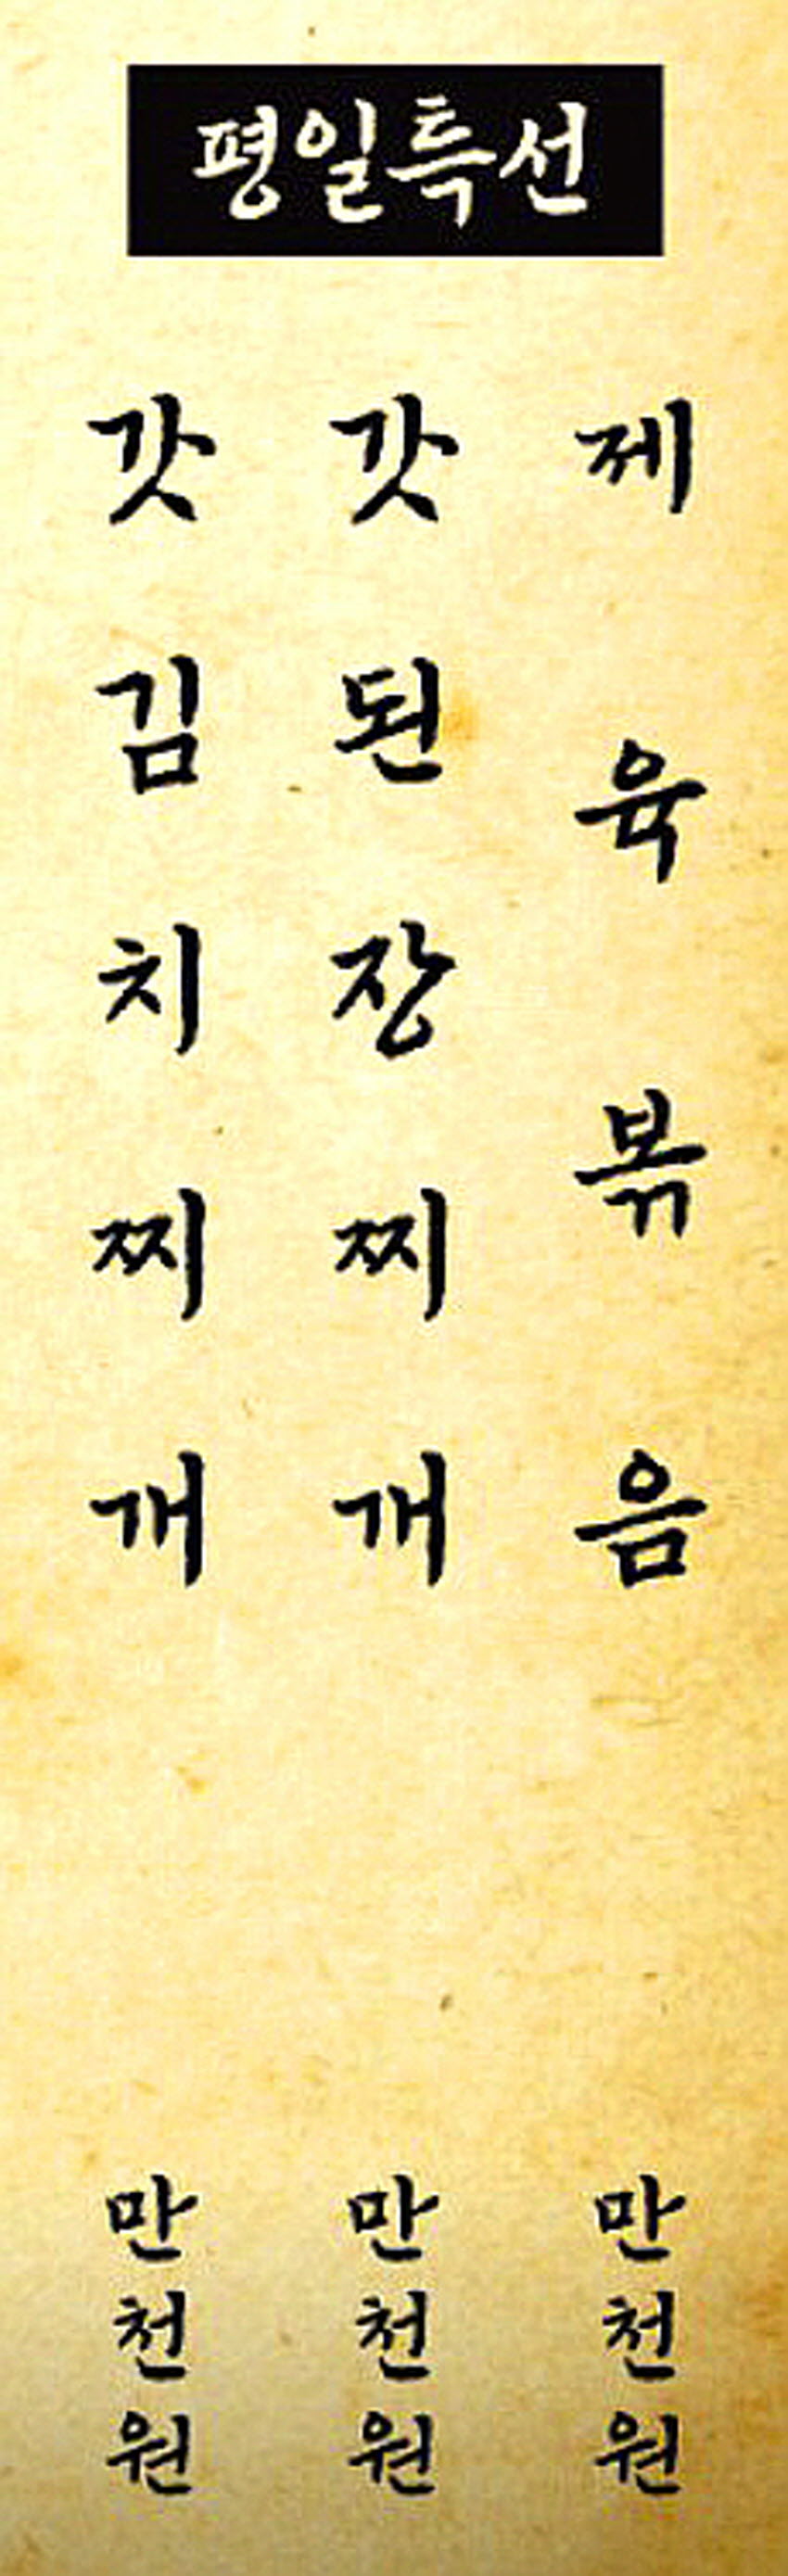 평일특선
갓김치찌개
만천원
갓된장찌개
만천원
제육볶음
만천원